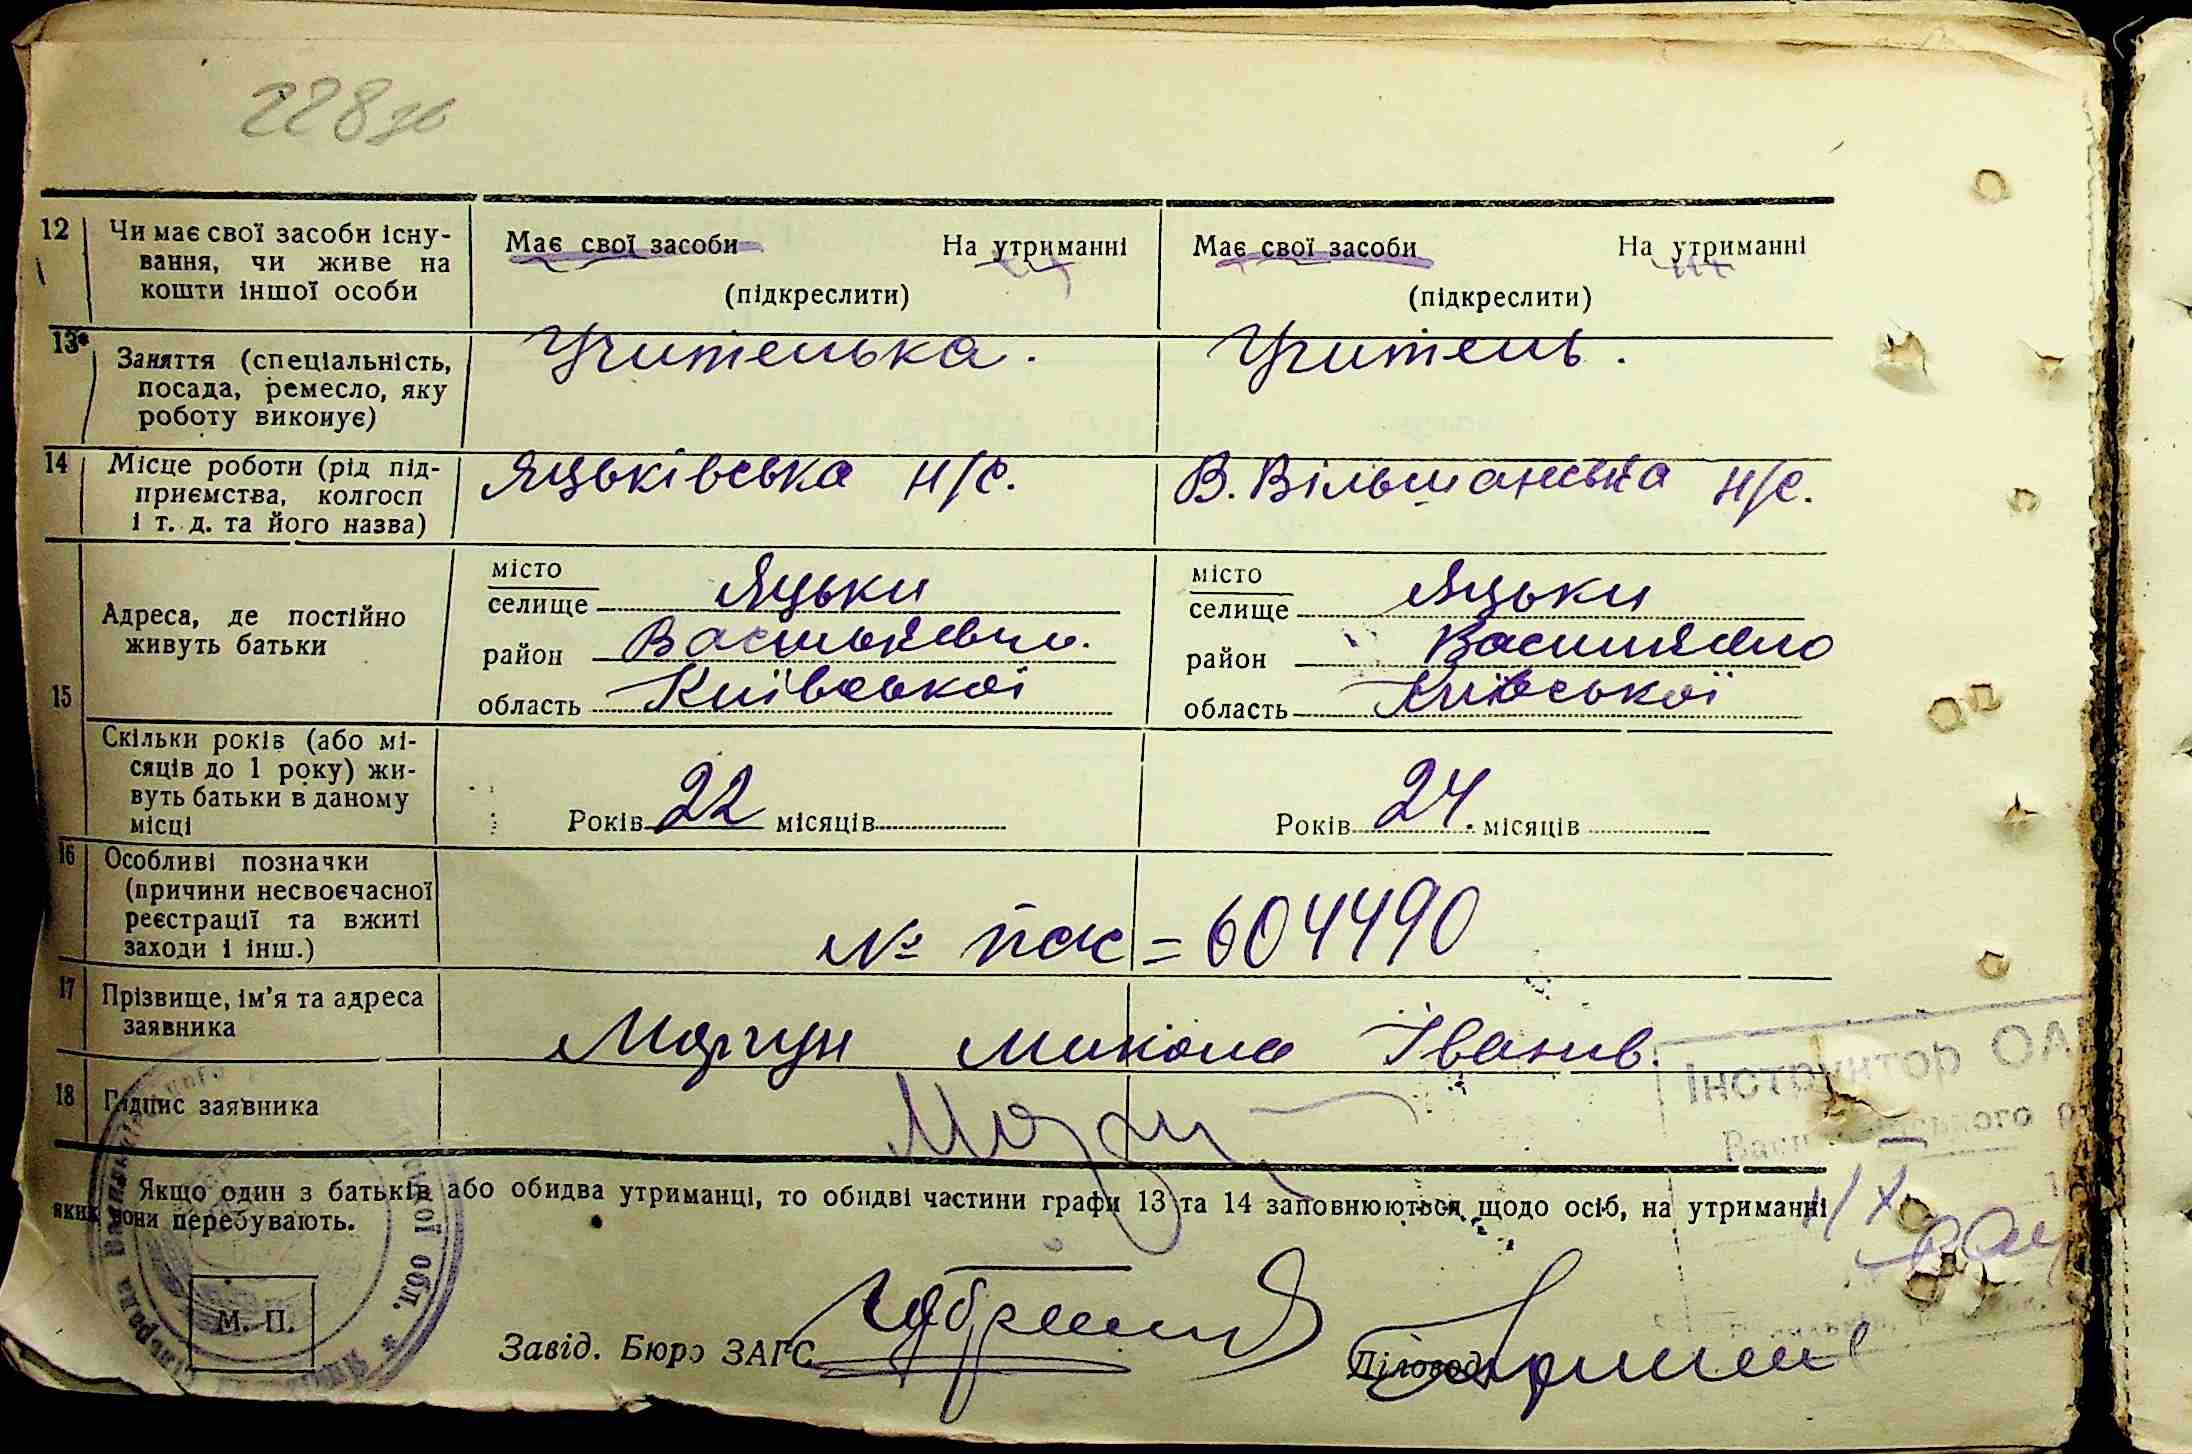 228зв
12 Чи має свої засоби існу- Має свої засоби На утриманні Має свої засоби На утриманні
вання, чи живе на
кошти іншої особи (підкреслити) (підкреслити)
13* Заняття (спеціальність, Учителька. Учитель.
посада, ремесло, яку
роботу виконує)
14 Місце роботи (рід під- Яцьківська н/с. В. Вільшанська н/с.
приємства, колгосп
і т. д. та його назва)
15 Адреса, де постійно живуть батьки
місто
селище Яцьки
район Васильківськ.
область Київської
місто
селище Яцьки
район
область Київської
Скільки років (або мі-
сяців до 1 року) жи-
вуть батьки в даному
місці Років 22 місяців Років 24. місяців
16 Особливі позначки
(причини несвоєчасної
реєстрації та вжиті
заходи і інш.) № пск = 604490
17 Прізвище, ім'я та адреса
заявника Моргун Микола Іванов.
18 Підпис заявника
Інструктор ОА
Якщо один з батьків або обидва утриманці, то обидві частини графи 13 та 14 заповнюються щодо осіб, на утриманні
яких вони перебувають.
М. П.
Завід. Бюро ЗАГС Діловод